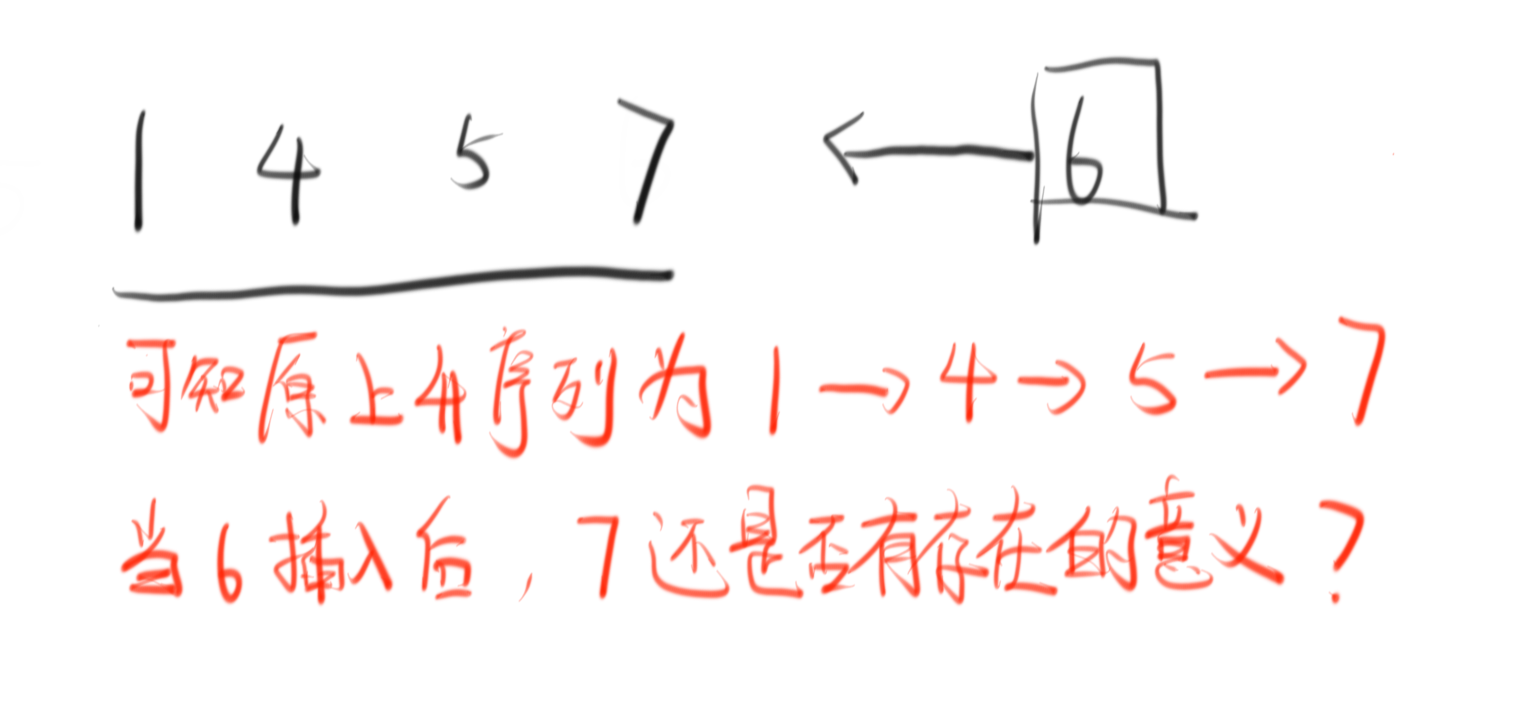 1 4 5 7 ← 6
可知原上升序列为 1 → 4 → 5 → 7
当 6 插入后，7 还是否有存在的意义？